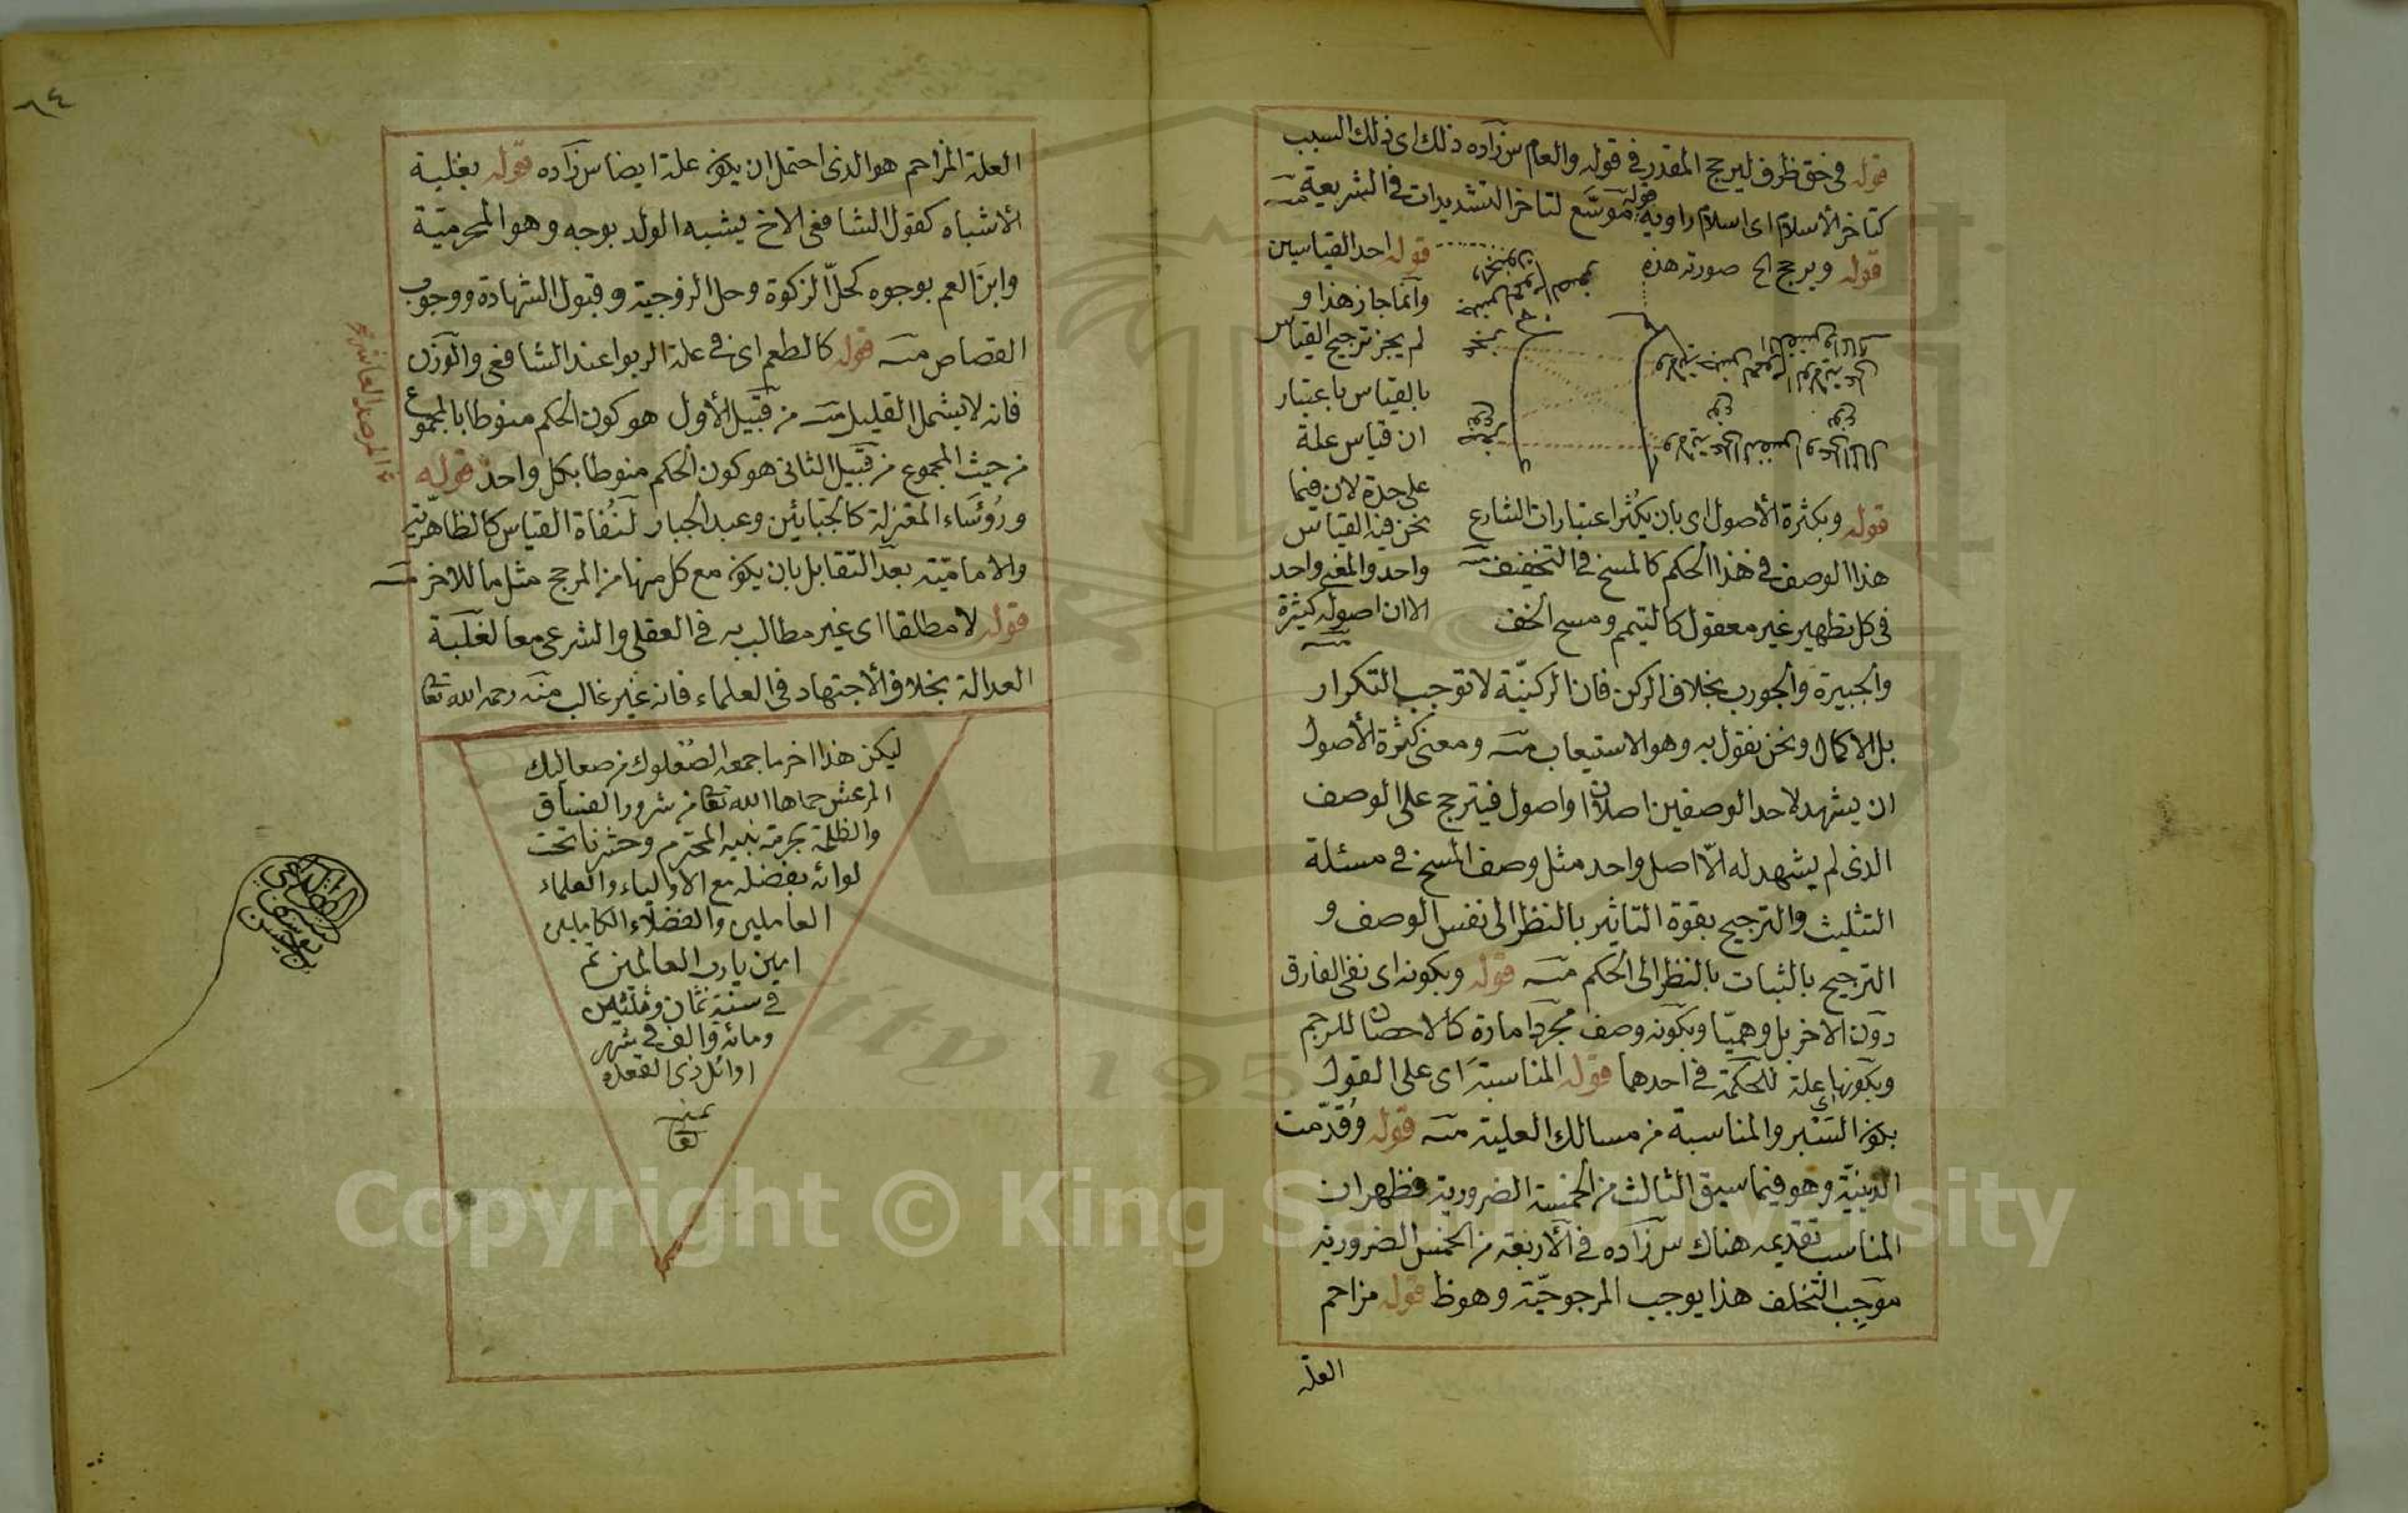 قوله في حق ظرف ليرجح المقدر في قوله والعام س زاده ذلك اى ذلك السبب
كتاخر الأسلام اى اسلام راويه قوله موسّع لتاخر التشديدات في الشريعة منه
قوله ويرجح الخ صورته هذه
قوله احد القياسين
وانما جاز هذا و
لم يجز ترجيح القياس
بالقياس باعتبار
ان قياس علة
على حدة لان فيما
نحن فيه القياس
واحد والمعنى واحد
الا ان اصوله كثيرة
منه
قوله وبكثرة الأصول اى بان يكثر اعتبارات الشارع
هذا الوصف في هذا الحكم كالمسح في التخفيف منه
في كل تطهير غير معقول كالتيمم ومسح الخف
والجبيرة والجورب بخلاف الركن فان الركنيّة لا توجب التكرار
بل الاكمال ونحن نقول به وهو الاستيعاب منه ومعنى كثرة الأصول
ان يشهد لاحد الوصفين اصلان او اصول فيترجح على الوصف
الذى لم يشهد له الّا اصل واحد مثل وصف المسح في مسئلة
التثليث والترجيح بقوة التاثير بالنظر الى نفس الوصف و
الترجيح بالثبات بالنظر الى الحكم منه قوله وبكونه اى نفى الفارق
دون الاخر بل وهميّا وبكونه وصف مجرد امارة كالاحصان للرجم
وبكونها علة للحكمة في احدهما قوله المناسبة اى على القول
بكون السَبْر والمناسبة من مسالك العلية منه قوله وقدّمت
الدينيّة وهو فيما سبق الثالث من الخمسة الضرورية فظهر ان
المناسب تقديمه هناك س زاده في الأربعة من الخمس الضرورية
موجب التخلف هذا يوجب المرجوحيّة وهو ظ قوله مزاحم
العلة
٦٤
العلة المزاحم هو الذى احتمل ان يكون علة ايضا س زاده قوله بغلبة
الأشباه كقول الشافعى الاخ يشبه الولد بوجه وهو المحرميّة
وابن العم بوجوه كحلّ الزكوة وحل الزوجية وقبول الشهادة ووجوب
القصاص منه قوله كالطعم اى في علة الربوا عند الشافعى والوزن
فانه لا يشمل القليل منه من قبيل الأول هو كون الحكم منوطا بالمجموع
من حيث المجموع من قبيل الثانى هو كون الحكم منوطا بكل واحد قوله
ورُوَساء المعتزلة كالجبايئن وعبد الجبار لنُفاة القياس كالظاهريّة
والاماميّة بعد التقابل بان يكون مع كل منها من المرجح مثل ما للاخر منه
قوله لا مطلقا اى غير مطالب به في العقلى والشرعى معا لغلبة
العدالة بخلاف الأجتهاد في العلماء فانه غير غالب منه رحمه الله تعا
ليكن هذا اخر ما جمعه الصعلوك من صعاليك
المرعش حماها الله تعا من شرور الفساق
والظلمة بحرمة نبيه المحترم وحشرنا تحت
لوائه بفضله مع الاولياء والعلماء
العاملين والفضلاء الكاملين
امين يا رب العالمين تم
في سنة ثمان وثلثين
ومائة والف في شهر
اوائل ذى القعدة
Copyright © King Saud University